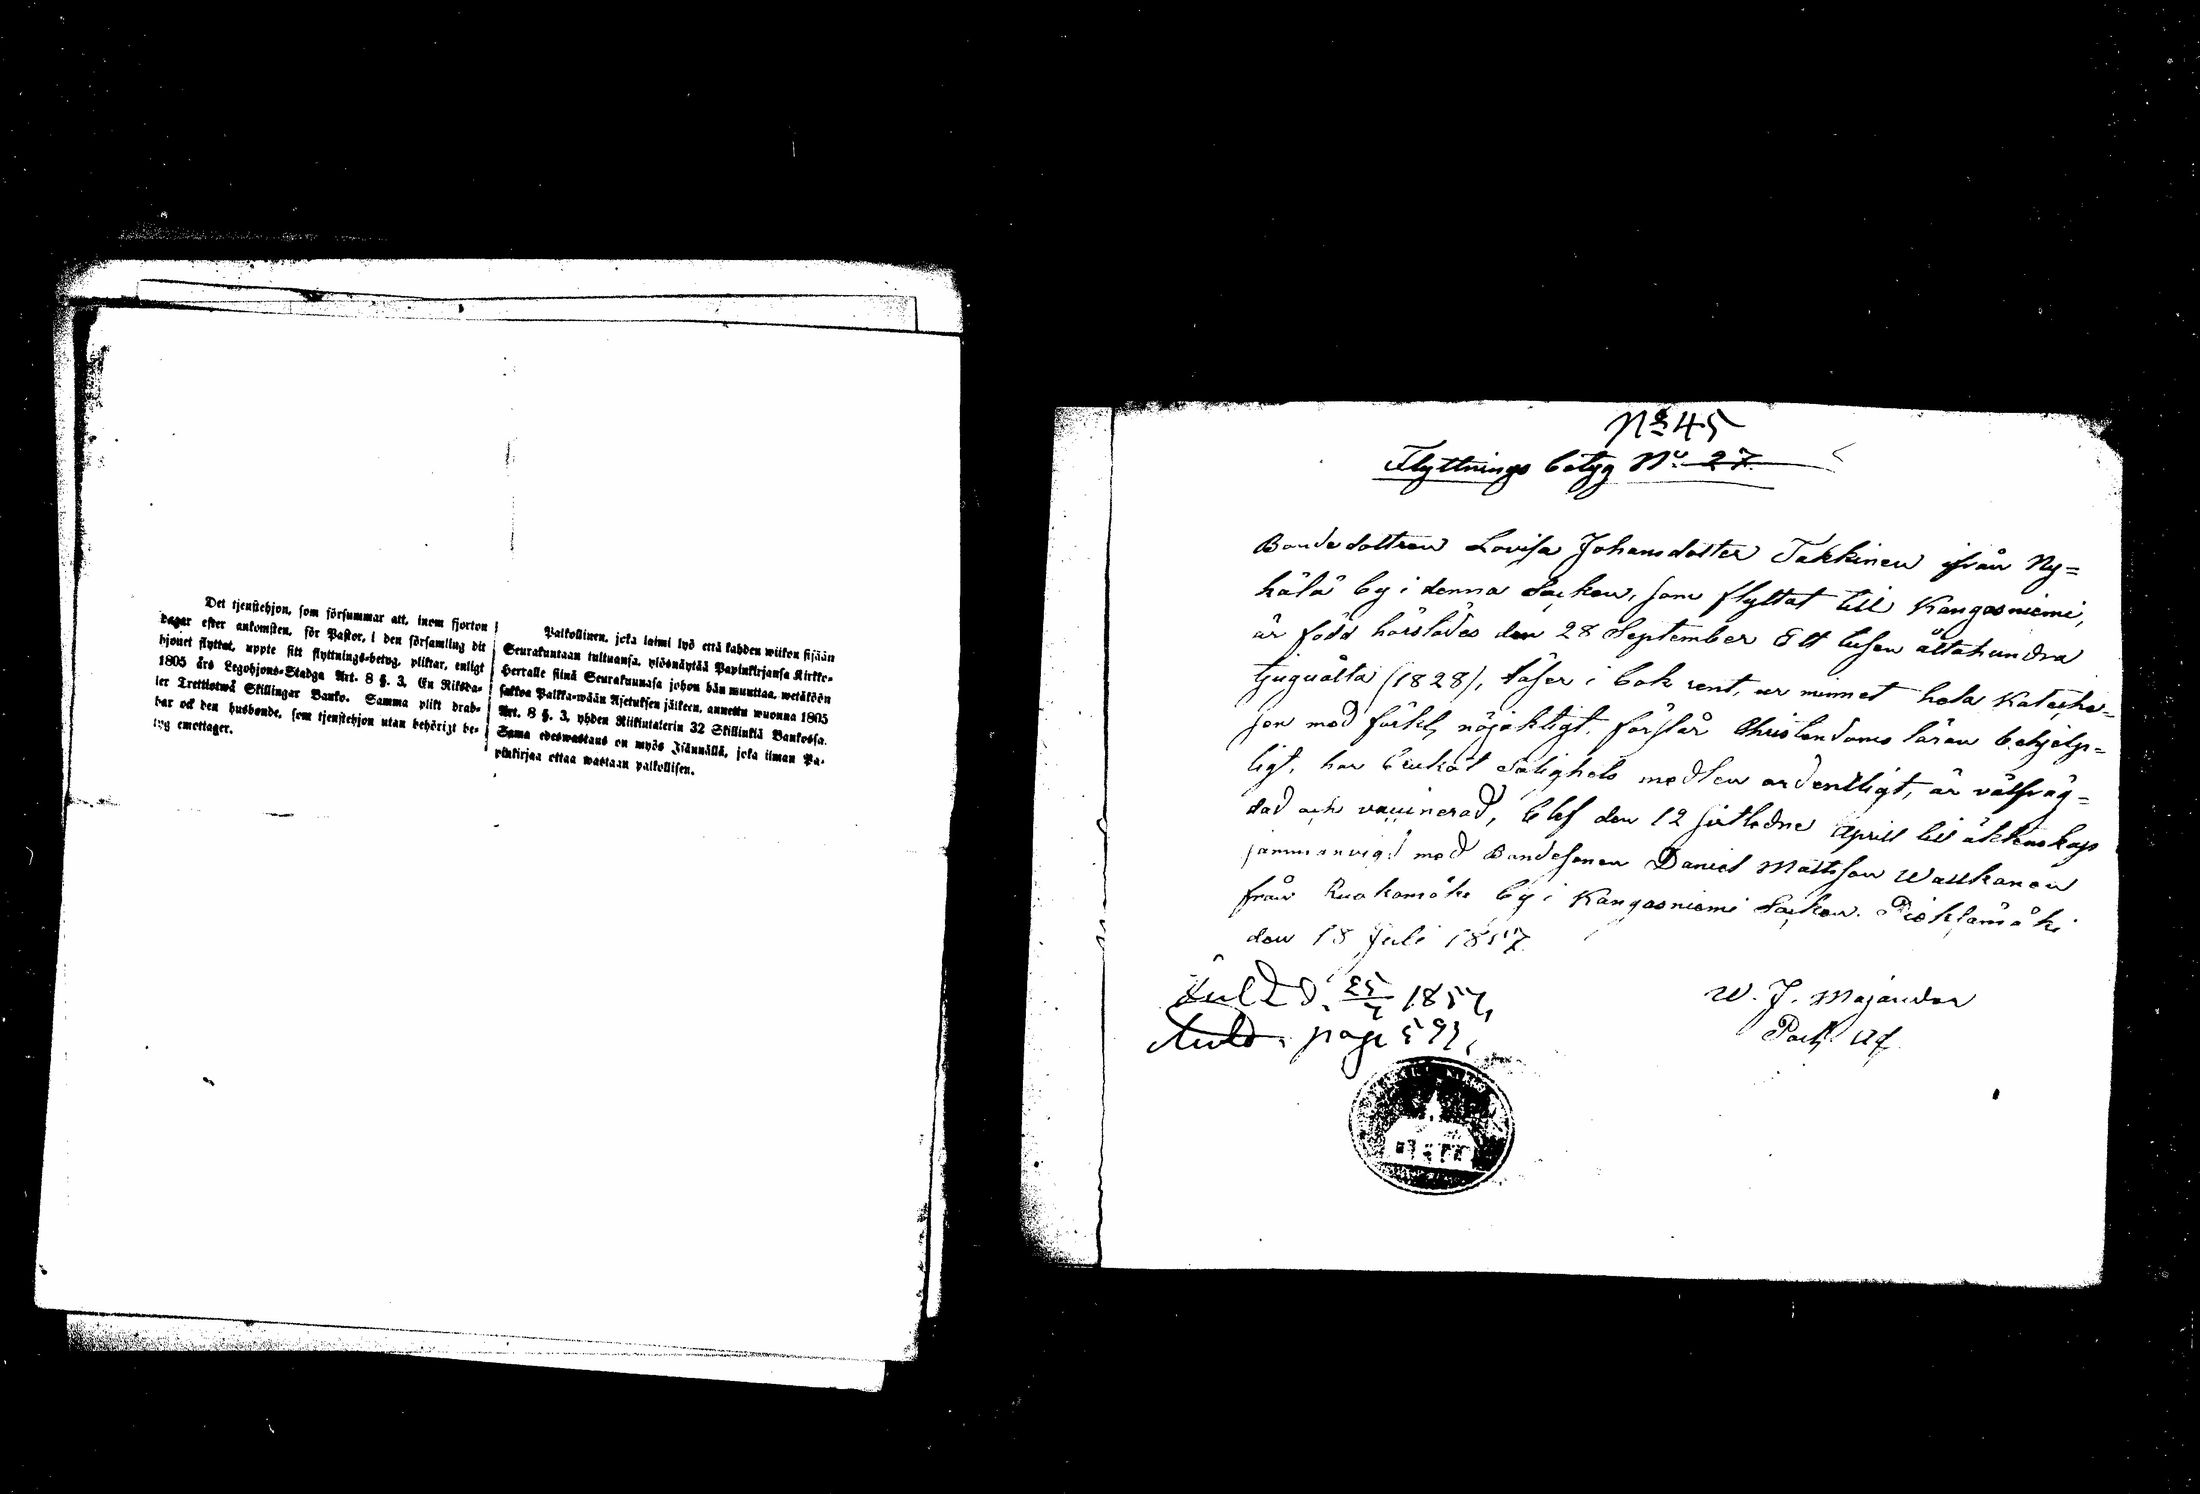 Det tjenstehjon, som försummar att, inom fjorton
dagar efter ankomsten, för Pastor, i den församling dit
hjonet flyttat, uppte sitt flyttnings-betyg, pliktar, enligt
1805 års Legohjons-Stadga Art. 8 §. 3, En Riksda-
ler Trettiotwå Skillingar Banko. Samma plikt drab-
bar ock den husbonde, som tjenstehjon utan behörigt be-
tyg emottager.
Palkollinen, joka laimi lyö että kahden wiikon sisään
Seurakuntaan tultuansa, ylösnäytää Papinkirjansa Kirkko-
Herralle siinä Seurakunnasa johon hän muuttaa, wetäköön
sakkoa Palkka-wään Ajetuksen jälkeen, annettu wuonna 1805
Art. 8 §. 3, yhden Riikintalerin 32 Skillinkiä Bankossa.
Sama edeswastaus on myös Isännällä, joka ilman Pa-
pinkirjaa ottaa wastaan palkollisen.
No 45
Flyttnings betyg No 27
Bondedottren Lovisa Johansdotter Takkinen ifrån Ny=
hälä by i denna Socken, som flyttat till Kangasniemi,
är född härstädes den 28 September Ett tusen åttahundra
tjuguåtta (1828), läser i bok rent, ur minnet hela Kateche=
sen med förkl. nöjaktigt, förstår Christendoms läran behjelp=
ligt, har brukat Salighets medlen ordentligt, är välfräg=
dad och vaccinerad, blef den 12 sistledne April til äktenskap
sammanvigd med Bondesonen Daniel Mattsson Waukonen
från Ruokomäki by i Kangasniemi Socken. Pieksämäki
den 18 Juli 1857.
W. J. Majander
Past. Adj.
d. 25/7 1857,
page 591,